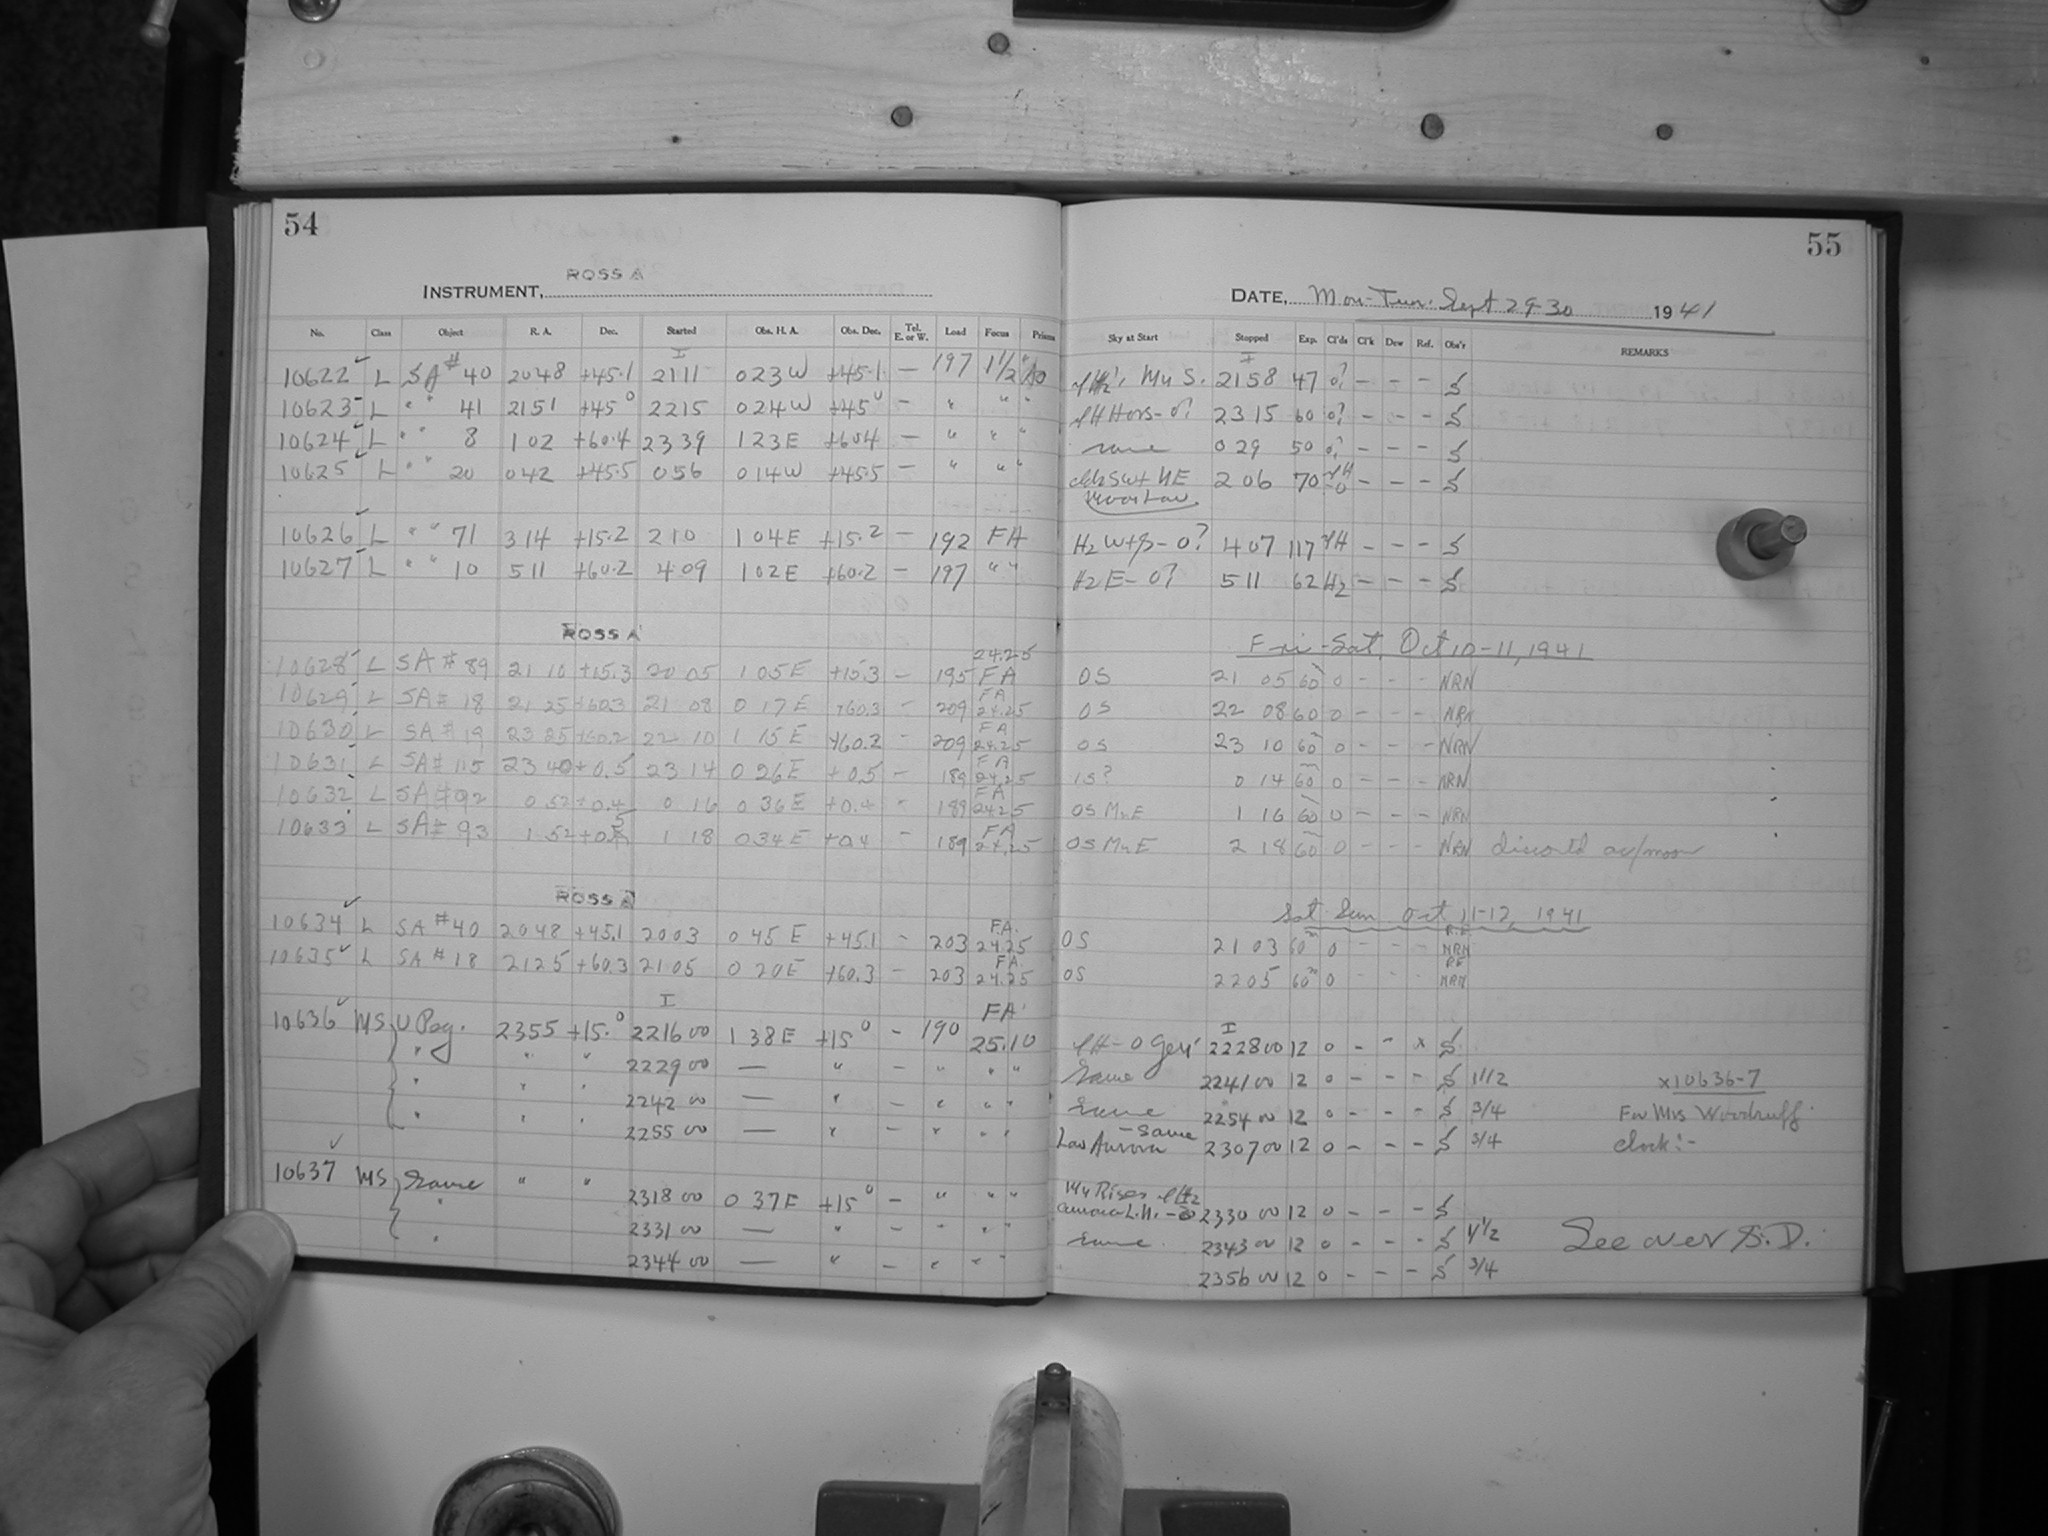 54
55
ROSS A
INSTRUMENT,
DATE, Mon-Tues. Sept 29-30 1941
No. Class Object R. A. Dec. Started Obs. H. A. Obs. Dec. Tel. E. or W. Load Focus Prisms Sky at Start Stopped Exp. Cl'ds Cl'k Dew Ref. Obs'r REMARKS
10622 L SA # 40 2048 +45.1 2111 023W +45.1 — 197 1 1/2 Mn S. 2158 47 0? — — — S
10623 L " " 41 2151 +45° 2215 024W +45° — " " " 2315 60 0? — — — S
10624 L " " 8 102 +60.4 2339 123E +60.4 — " " " same 029 50 0? — — — S
10625 L " " 20 042 +45.5 056 014W +45.5 — " " " NE 206 70 — — — S
Moon Low
10626 L " " 71 314 +15.2 210 104E +15.2 — 192 FA 407 117 — — — S
10627 L " " 10 511 +60.2 409 102E +60.2 — 197 " " H2 E - 0? 511 62 H2 — — — S
ROSS A
Fri-Sat, Oct 10-11, 1941
10628 L SA # 89 21 10 +15.3 20 05 1 05 E +15.3 — 195 24.25 FA OS 21 05 60 0 - - - NRN
10629 L SA # 18 21 25 +60.3 21 08 0 17 E +60.3 - 209 FA 24.25 OS 22 08 60 0 - - - NRN
10630 L SA # 19 23 25 +60.2 22 10 1 15 E +60.2 - 209 FA 24.25 OS 23 10 60 0 - - - NRN
10631 L SA # 115 23 40 +0.5 23 14 0 26 E +0.5 - 189 FA 24.25 1S? 0 14 60 0 - - - NRN
10632 L SA # 92 0 52 +0.4 0 16 0 36 E +0.4 - 189 FA 24.25 OS Mn E 1 16 60 0 - - - NRN
10633 L SA # 93 1 52 1 18 0 34 E +0.4 - 189 FA 24.25 OS Mn E 2 18 60 0 - - - NRN moon
ROSS A
Sat Sun Oct 11-12, 1941
10634 L SA # 40 2048 +45.1 2003 0 45 E +45.1 - 203 F.A. 24.25 OS 21 03 60m 0 - - - NRN
10635 L SA # 18 2125 +60.3 2105 0 20E +60.3 - 203 FA 24.25 OS 2205 60m 0 - - - NRN
10636 MS U Peg. 2355 +15.° 2216 00 1 38E +15° - 190 FA 25.10 2228 00 12 0 - - x S
" " " 2229 00 — " - " " " Same 2241 00 12 0 - - - S 1 1/2 x10636-7
" " " 2242 00 — " - " " " Same 2254 00 12 0 - - - S 3/4 For Mrs Woodruff
" " " 2255 00 — " - " " " Low Aurora - Same 2307 00 12 0 - - - S 3/4 Clock:-
10637 MS Same " " 2318 00 0 37E +15° - " " " Mn Rises 2330 00 12 0 - - - S
" 2331 00 — " - " " " same 2343 00 12 0 - - - S 1 1/2 See over S.D.
" 2344 00 — " - " " " 2356 00 12 0 - - - S 3/4